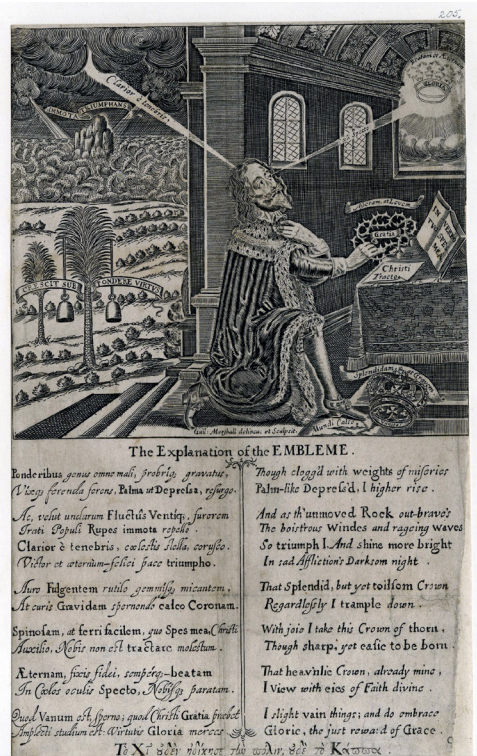 205.
Clarior è tenebris.
IMMOTA TRIUMPHANS
Beatam et Æternam
Asperam at Levem
Gratia
IN VERBO TUO SPES MEA
Christi
Tracto
CRESCIT SUB PONDERE VIRTUS
Splendidam at Gravem
Mundi Calco
Guil: Marshall delinea. et Sculpsit.
The Explanation of the EMBLEME.
Ponderibus genus omne mali, probriq gravatus,
Vixq ferenda ferens, Palma ut Depressa, resurgo.
Ac, velut undarum Fluctûs Ventiq, furorem
Irati Populi Rupes immota repello.
Clarior è tenebris, cœlestis stella, corusco.
Victor et æternùm-felici pace triumpho.
Auro Fulgentem rutilo gemmisq micantem,
At curis Gravidam spernendo calco Coronam.
Spinosam, at ferri facilem, quo Spes mea, Christi
Auxilio, Nobis non est tractare molestum.
Æternam, fixis fidei, semperq-beatam
In Cœlos oculis Specto, Nobisq paratam.
Quod Vanum est, sperno; quod Christi Gratia præbet
Amplecti studium est: Virtutis Gloria merces.
Though clogg'd with weights of miseries
Palm-like Depress'd, I higher rise.
And as th'unmoved Rock out-brave's
The boistrous Windes and rageing waves
So triumph I. And shine more bright
In sad Affliction's Darksom night.
That Splendid, but yet toilsom Crown
Regardlessly I trample down.
With joie I take this Crown of thorn,
Though sharp, yet easie to be born.
That heav'nlie Crown, already mine,
I View with eies of Faith divine.
I slight vain things; and do embrace
Glorie, the just reward of Grace.
Τὸ Χῖ οὐδὲν ἠδίκησε τὴν πόλιν, οὐδὲ τὸ Κάππα.